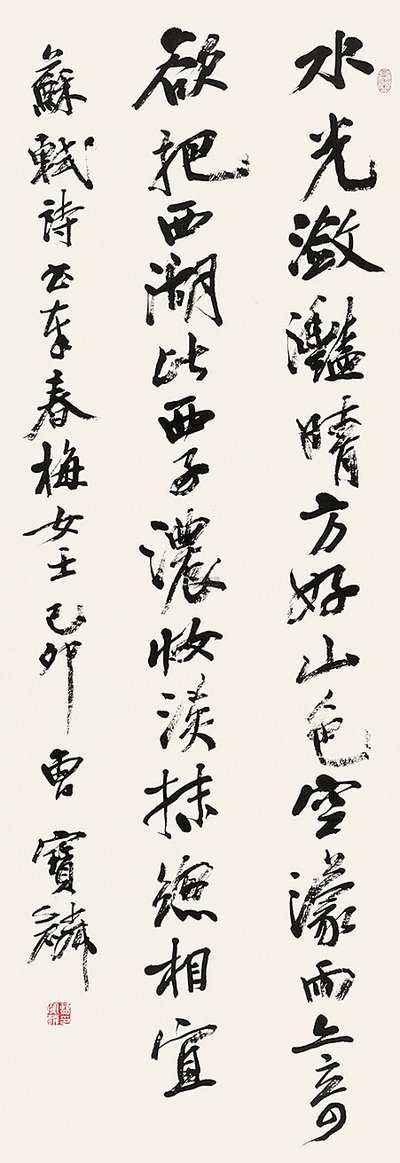 水光瀲灩晴方好山色空濛雨亦奇
欲把西湖比西子濃妝淡抹總相宜
蘇軾詩書奉春梅女士己卯曹寶麟